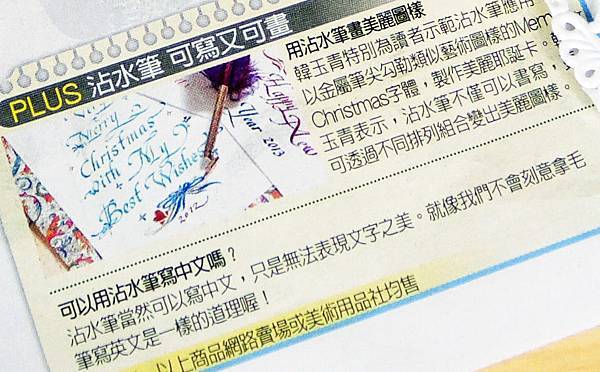 PLUS 沾水筆 可寫又可畫
用沾水筆畫美麗圖樣
韓玉青特別為讀者示範沾水筆應用，
以金屬筆尖勾勒類似藝術圖樣的Merry
Christmas字體，製作美麗耶誕卡。韓
玉青表示，沾水筆不僅可以書寫，
可透過不同排列組合變出美麗圖樣。
Merry
Christmas
with My
Best Wishes
2012
Happy New
Year 2013
可以用沾水筆寫中文嗎？
沾水筆當然可以寫中文，只是無法表現文字之美。就像我們不會刻意拿毛
筆寫英文是一樣的道理喔！
以上商品網路賣場或美術用品社均售